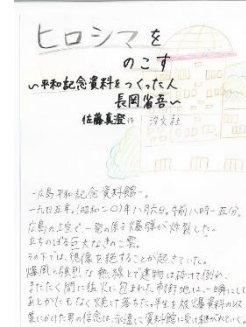 ヒロシマを
のこす
〜平和記念資料をつくった人
長岡省吾〜
佐藤真澄 汐文社
広島平和記念資料館。
一九四五年(昭和二〇)年八月六日。午前八時一五分。
広島の上空で一発の原子爆弾が炸裂した。
立ちのぼる巨大なきのこ雲。
その下では、想像を絶することが起きていた。
爆風と強烈な熱線で建物は砕けて倒れ、
またたく間に猛火に包まれた市街地は一瞬にして
あとかたもなく焼け落ちた。半生を放爆資料の収
集にかけた男の信念は、永遠に資料館に受け継がれていく。